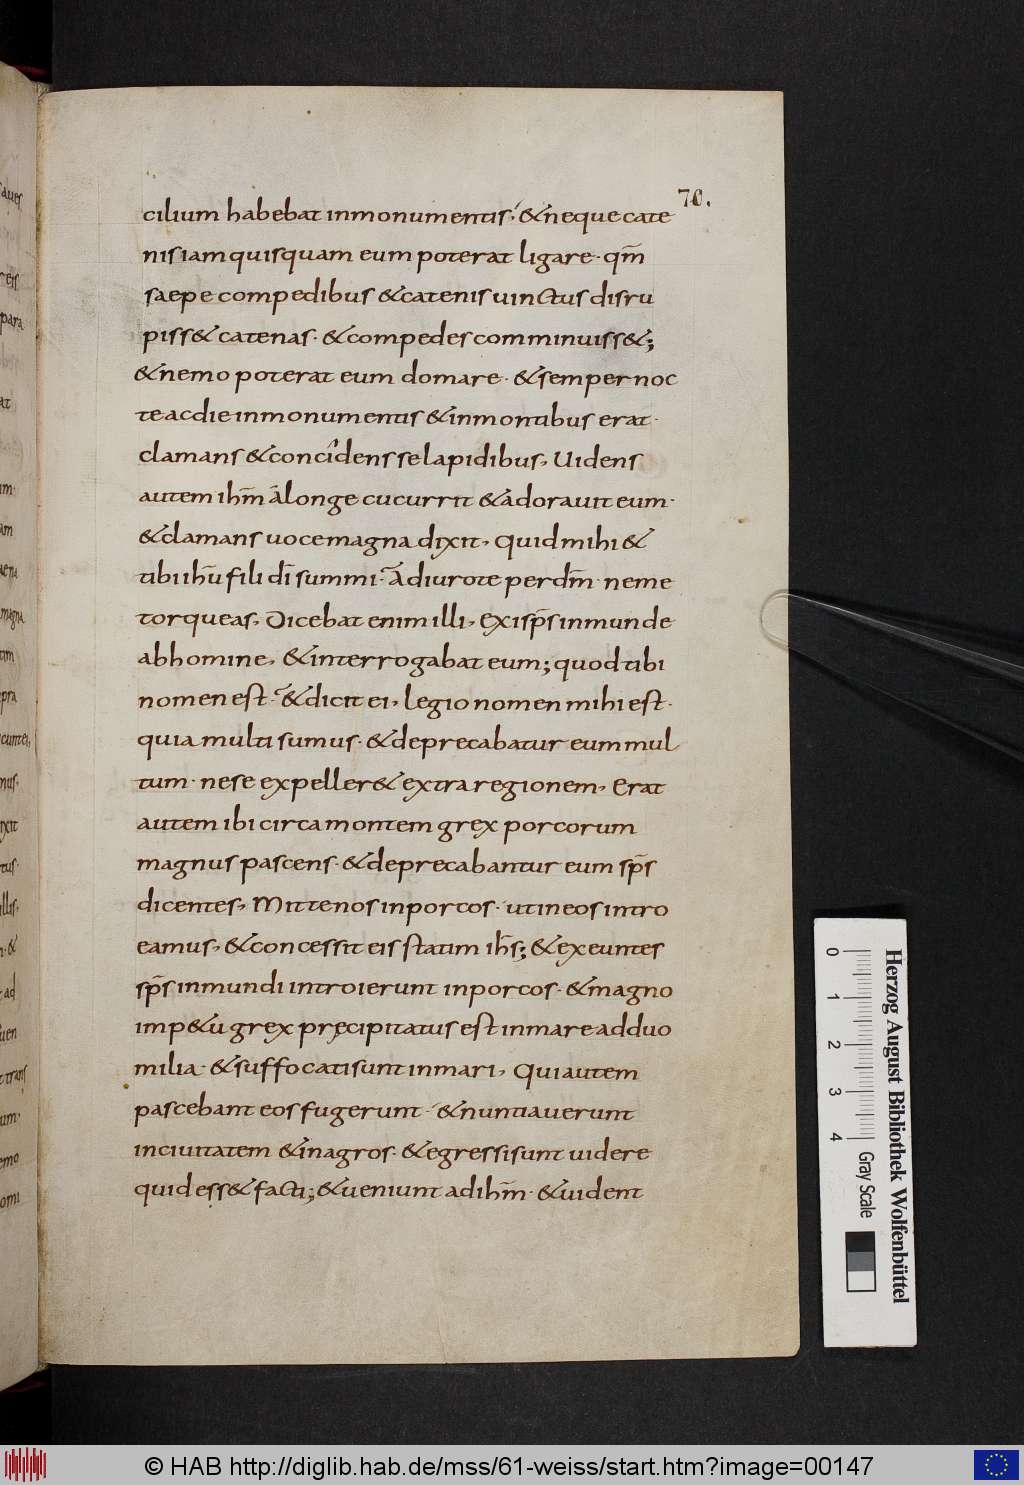 70.
cilium habebat inmonumentis, & neque cate
nis iam quisquam eum poterat ligare· qm̄
saepe compedibus & catenis uinctus disru
piss& catenas· & compedes comminuiss&;
& nemo poterat eum domare· & semper noc
te ac die inmonumentis & inmontibus erat·
clamans & concidens se lapidibus, Uidens
autem ihm̄ a longe cucurrit & adorauit eum·
& clamans uoce magna dixit, Quid mihi &
tibi ihū fili dī summi· Adiuro te per dm̄· ne me
torqueas, Dicebat enim illi, Exi sp̄s inmunde
ab homine, & interrogabat eum; quod tibi
nomen est· & dicit ei, legio nomen mihi est·
quia multi sumus· & deprecabatur eum mul
tum· ne se expeller& extra regionem, Erat
autem ibi circa montem grex porcorum
magnus pascens· & deprecabantur eum sp̄s
dicentes, Mitte nos inporcos· ut in eos intro
eamus, & concessit eis statim ih̄s; & exeuntes
sp̄s inmundi introierunt inporcos· & magno
imp&u grex pręcipitatus est inmare ad duo
milia· & suffocati sunt inmari, Qui autem
pascebant eos fugerunt· & nuntiauerunt
inciuitatem & inagros· & egressi sunt uidere
quid ess& facti; & ueniunt ad ihm̄· & uident
0 1 2 3 4 Gray Scale
Herzog August Bibliothek Wolfenbüttel
© HAB http://diglib.hab.de/mss/61-weiss/start.htm?image=00147